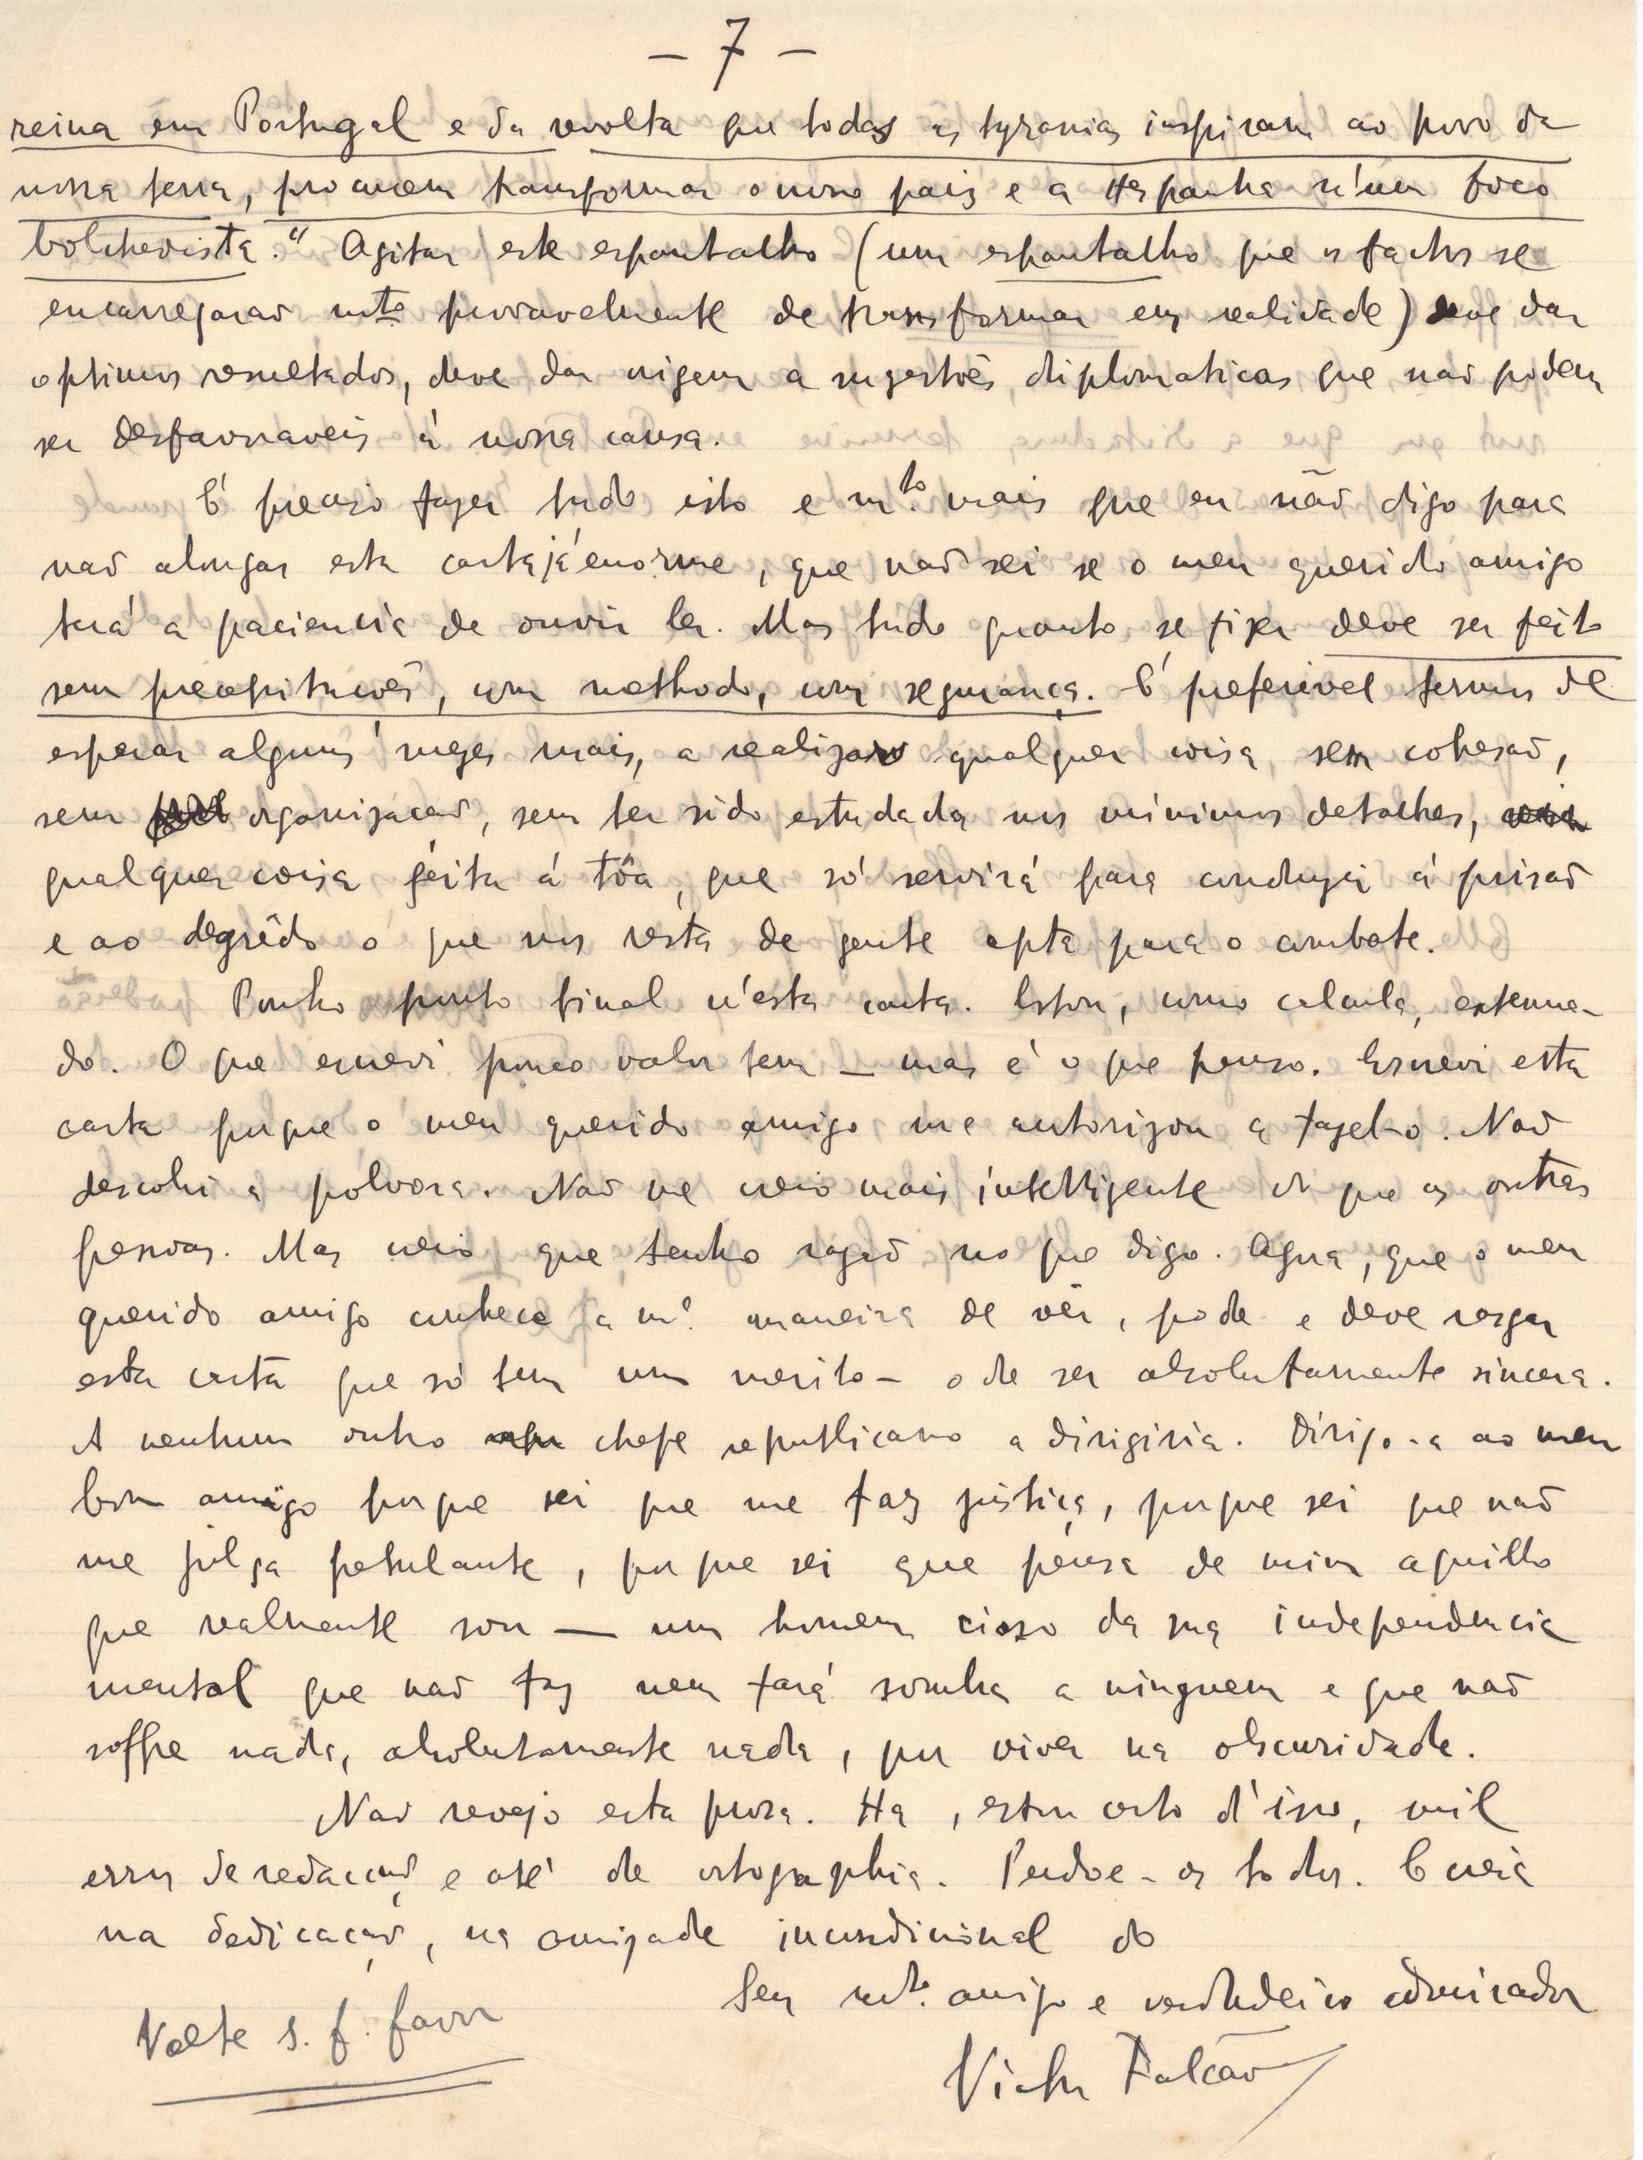 - 7 -
reina em Portugal e da revolta que todas as tyranias inspiram ao povo da
nossa terra, procurem transformar o nosso pais e a Hespanha n'um foco
bolchevista." Agitar este espantalho (um espantalho que os factos se
encarregarao mto provavelmente de transformar em realidade) deve dar
optimos resultados, deve dar origem a sugestões diplomaticas que nao podem
ser desfavoraveis á nossa causa.
E' preciso fazer tudo isto e m.to mais que eu não digo para
nao alongar esta carta já enorme, que nao sei se o meu querido amigo
terá a paciencia de ouvir ler. Mas tudo quanto se fizer deve ser feito
sem precipitações, com methodo, com segurança. E' preferivel termos de
esperar alguns mezes mais, a realizar qualquer coisa sem cohesao,
sem organizaçao, sem ter sido estudada nos minimos detalhes,
qualquer coisa feita á tôa, que só servirá para conduzir á prisao
e ao degrêdo o que nos resta de gente apta para o combate.
Ponho ponto final n'esta carta. Estou, como calcula, extenua-
do. O que escrevi pouco valor tem - mas é o que penso. Escrevi esta
carta porque o meu querido amigo me autorizou a fazel-o. Nao
descobri a pólvora. Nao me creio mais intelligente do que as outras
pessoas. Mas creio que tenho razao no que digo. Agora, que o meu
querido amigo conhece a m.ª maneira de vêr, pode e deve rasgar
esta carta que só tem um merito - o de ser absolutamente sincera.
A nenhum outro chefe republicano a dirigiria. Dirijo-a ao meu
bom amigo porque sei que me faz justiça, porque sei que nao
me julga petulante, porque sei que pensa de mim aquillo
que realmente sou - um homem cioso da sua independencia
mental que nao faz nem fará sombra a ninguem e que nao
soffre nada, absolutamente nada, por viver na obscuridade.
Nao revejo esta prosa. Ha, estou certo d'isso, mil
erros de redacçao e até de ortographia. Perdoe-os todos. E creia
na dedicaçao, na amizade incondicional do
Seu mto. amigo e verdadeiro admirador
Volte s. f. favor
Victor Falcão